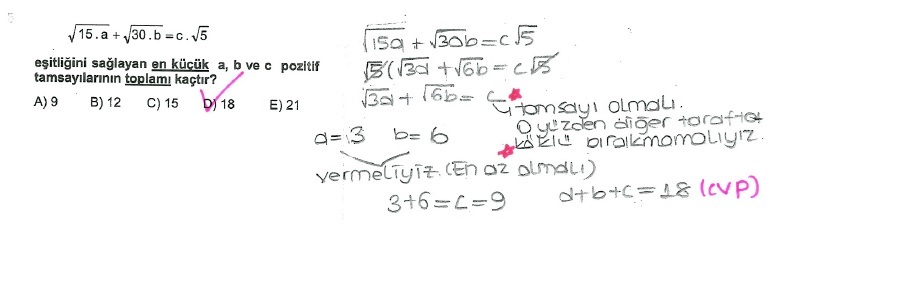 √15.a + √30.b = c.√5
eşitliğini sağlayan en küçük a, b ve c pozitif
tamsayılarının toplamı kaçtır?
A) 9 B) 12 C) 15 D) 18 E) 21
√15a + √30b = c√5
√5(√3a + √6b = c√5
√3a + √6b = c
↳ tamsayı olmalı.
O yüzden diğer tarafta
köklü bırakmamalıyız.
a = 3 b = 6
vermeliyiz. (En az olmalı)
3+6=c=9 a+b+c=18 (cvp)